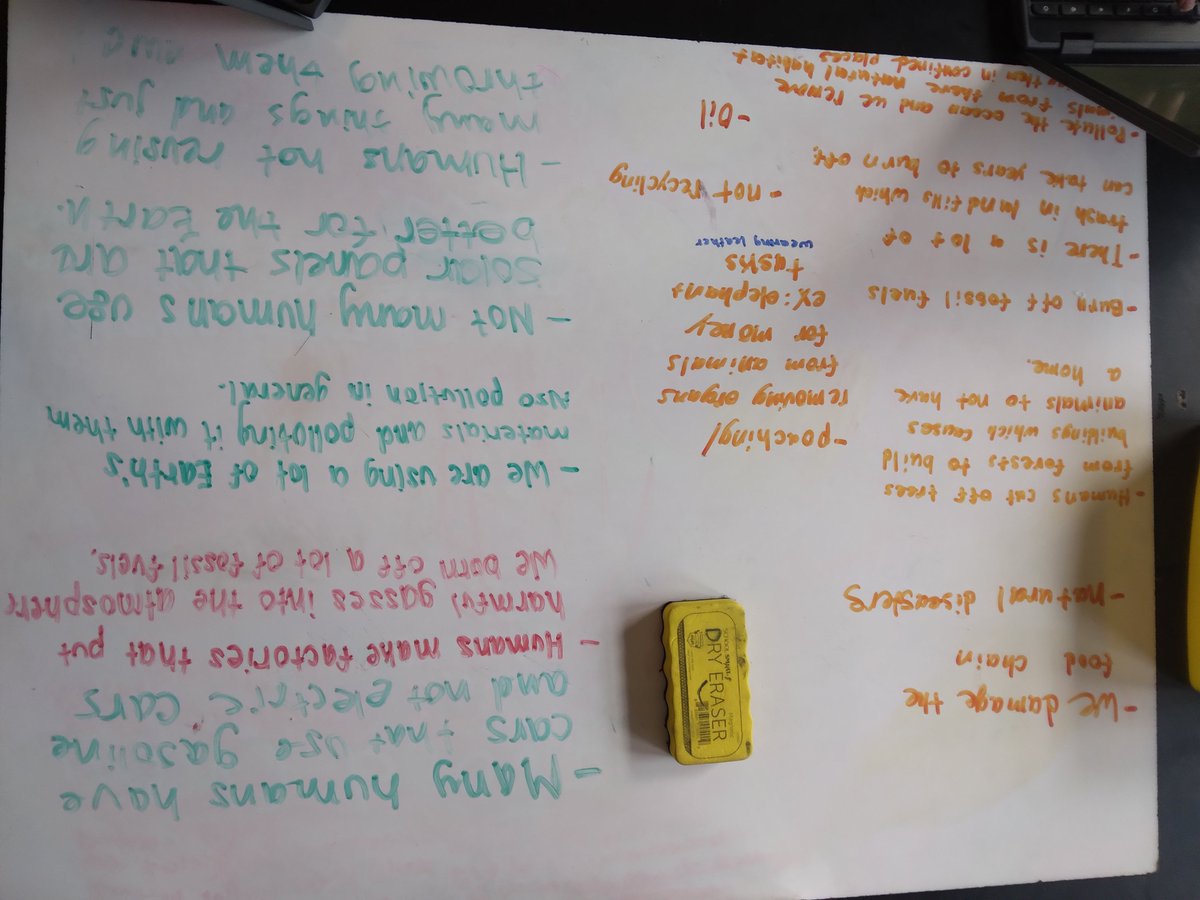 -We damage the
food chain
-natural diseasters
-Humans cut off trees
from forests to build
buildings which causes
animals to not have
a home.
-Burn off fossil fuels
-There is a lot of
trash in landfills which
can take years to burn off.
-Pollute the ocean and we remove
from there natural habitat
then in confined places
DRY ERASER
Magnetic
-poaching/
removing organs
from animals
for money
ex: elephant
tusks
wearing leather
-not recycling
-Oil
-Many humans have
cars that use gasoline
and not electric cars
-Humans make factories that put
harmful gasses into the atmosphere
We born off a lot of fossil fuels.
-We are using a lot of Earth's
materials and polloting it with them
Also pollution in general.
-Not many humans use
solar panels that are
better for the Earth.
-Humans not reusing
many things and just
throwing them